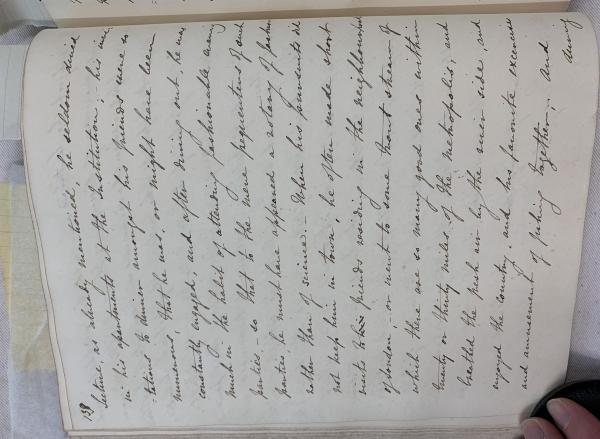 133
lecture, as already mentioned, he seldom dined
in his apartments at the Institution; - his invi
-tations to dinner amongst his friends were so
numerous, that he was, or might have been
constantly engaged; and after dining out, he was
much in the habit of attending fashionable evening
parties, - so that to the mere frequenters of such
parties, he must have appeared a votary of fashion
rather than of science. - When his pursuits did
not keep him in town, he often made short
visits to his friends residing in the neighbourhood
of London - or went to some trout stream of
which there are so many good ones within
twenty or thirty miles of the metropolis; and
breathed the fresh air by the river side, and
enjoyed the country, and his favorite exercise
and amusement of fishing together. - And
during